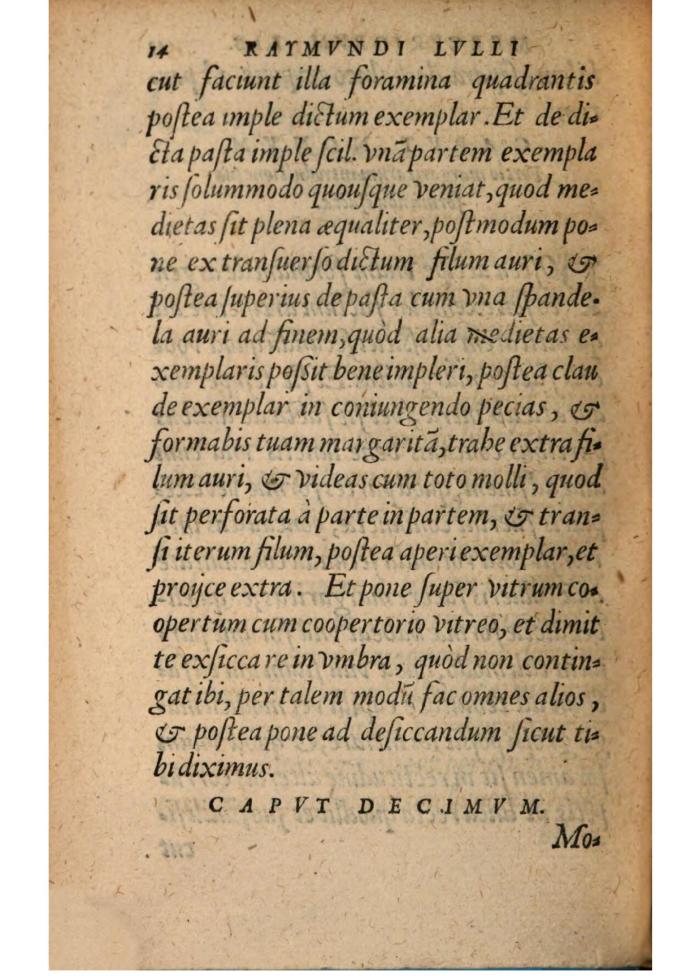 14 RAYMVNDI LVLLI
cut faciunt illa foramina quadrantis
poſtea imple dictum exemplar. Et de di-
cta paſta imple ſcil. vnā partem exempla
ris ſolummodo quouſque veniat, quod me-
dietas ſit plena æqualiter, poſtmodum po-
ne ex tranſuerſo dictum filum auri, &
poſtea ſuperius de paſta cum vna ſpande-
la auri ad finem, quòd alia medietas e-
xemplaris poſsit bene impleri, poſtea clau
de exemplar in coniungendo pecias, &
formabis tuam margaritā, trahe extra fi-
lum auri, & videas cum toto molli, quod
ſit perforata à parte in partem, & tran-
ſi iterum filum, poſtea aperi exemplar, et
proijce extra. Et pone ſuper vitrum co-
opertum cum coopertorio vitreo, et dimit
te exſiccare in vmbra, quòd non contin-
gat ibi, per talem modū fac omnes alios,
& poſtea pone ad deſiccandum ſicut ti-
bi diximus.
CAPVT DECIMVM.
Mo-